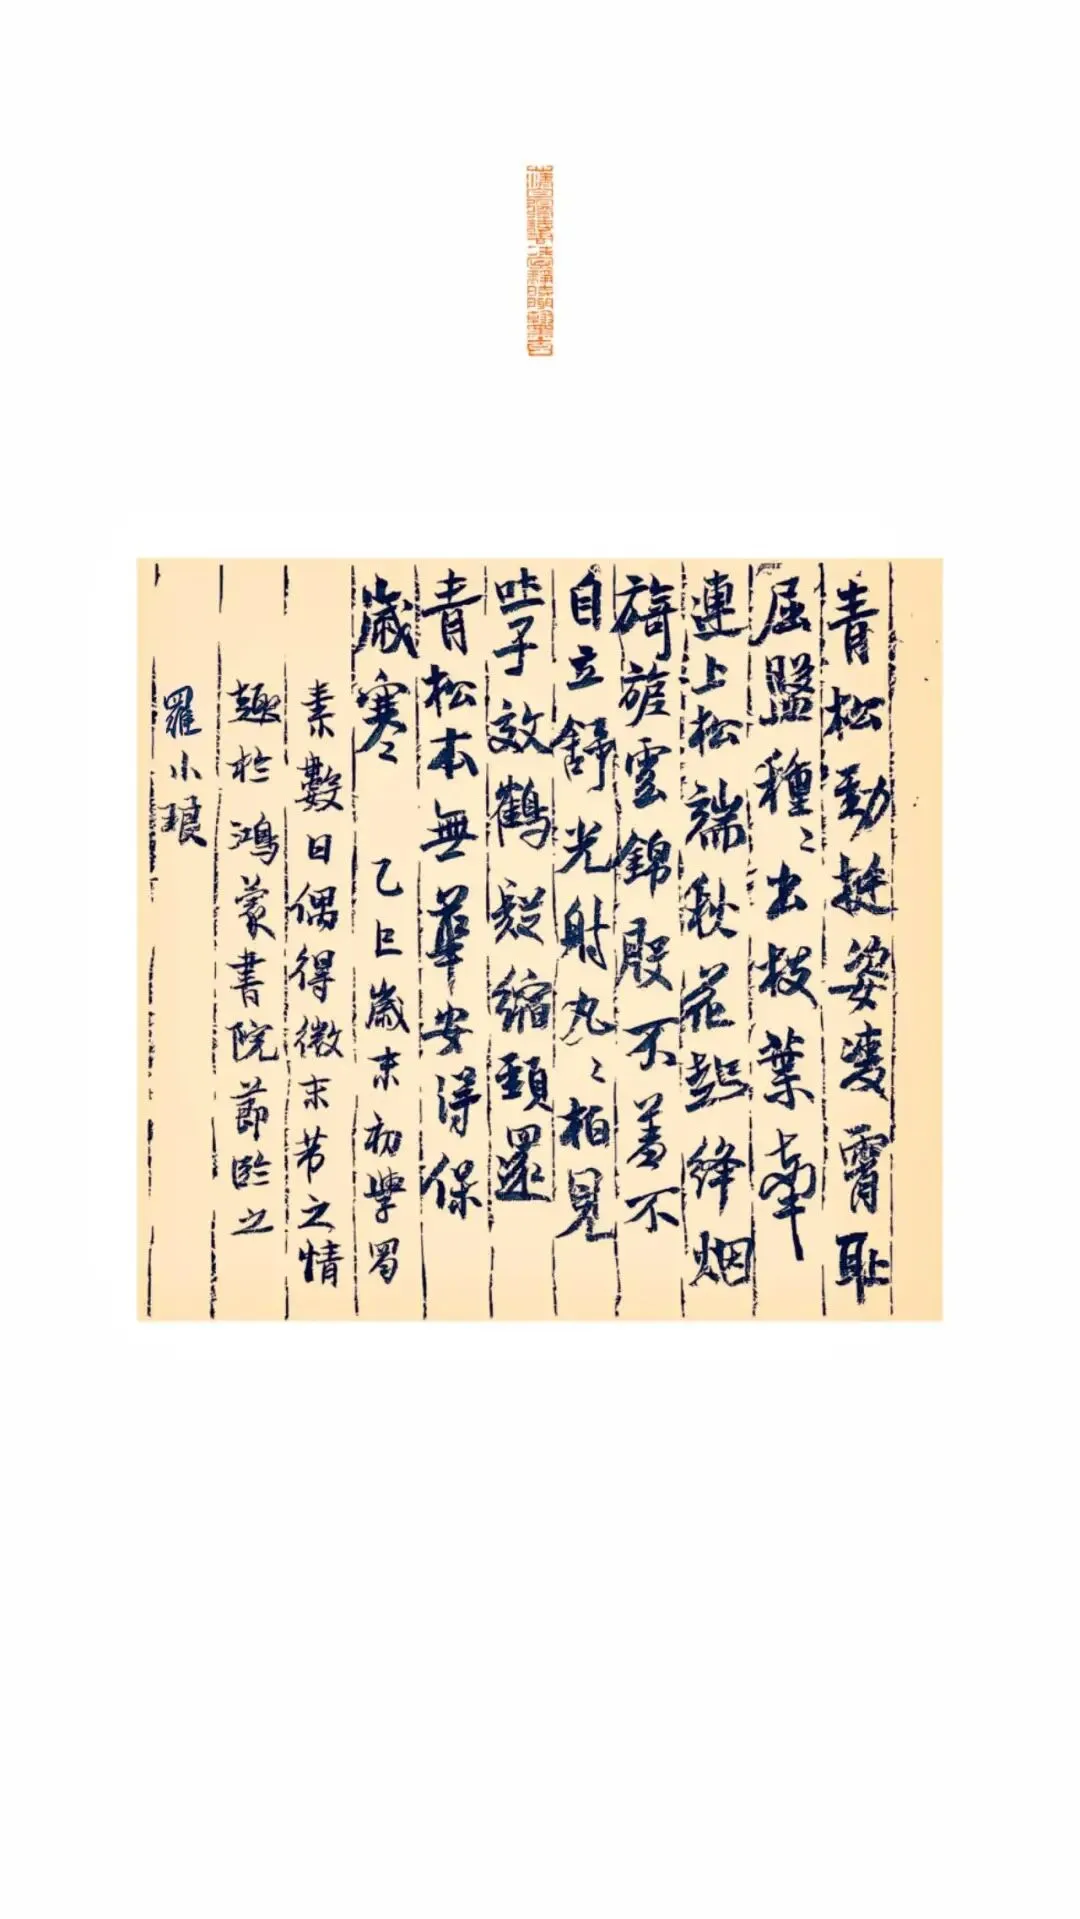 青松勁挺姿凌霄恥
屈盤種〻出枝葉牽
連上松端秋花起絳烟
旖旎雲錦殷不羞不
自立舒光射丸〻柏見
吐子效鶴疑縮頸還
青松本無華安得保
歲寒 乙巳歲末初學蜀
素數日偶得微末芳之情
趣於鴻蒙書院節臨之
羅小琅